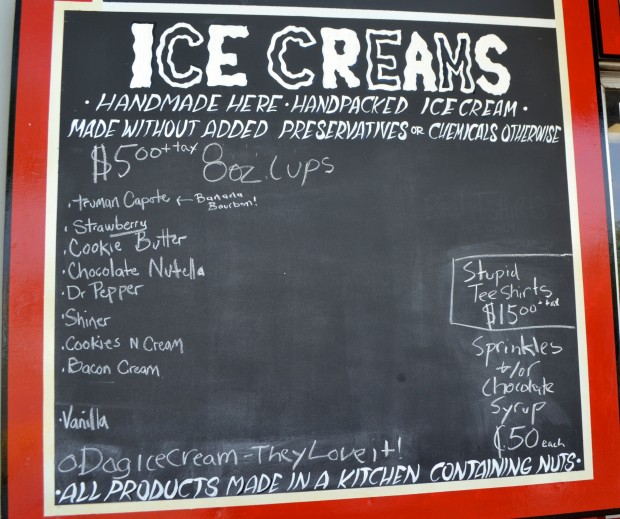 ICE CREAMS
· HANDMADE HERE · HANDPACKED ICE CREAM ·
MADE WITHOUT ADDED PRESERVATIVES OR CHEMICALS OTHERWISE
$5.00 + tax 8oz. Cups
· Truman Capote ← Banana Bourbon!
· Strawberry
· Cookie Butter
· Chocolate Nutella
· Dr Pepper
· Shiner
· Cookies N Cream
· Bacon Cream
· Vanilla
Stupid
Tee Shirts
$15.00 + tax
Sprinkles
+/or
Chocolate
Syrup
¢50 each
o Dog Ice Cream - They Love it!
· ALL PRODUCTS MADE IN A KITCHEN CONTAINING NUTS ·